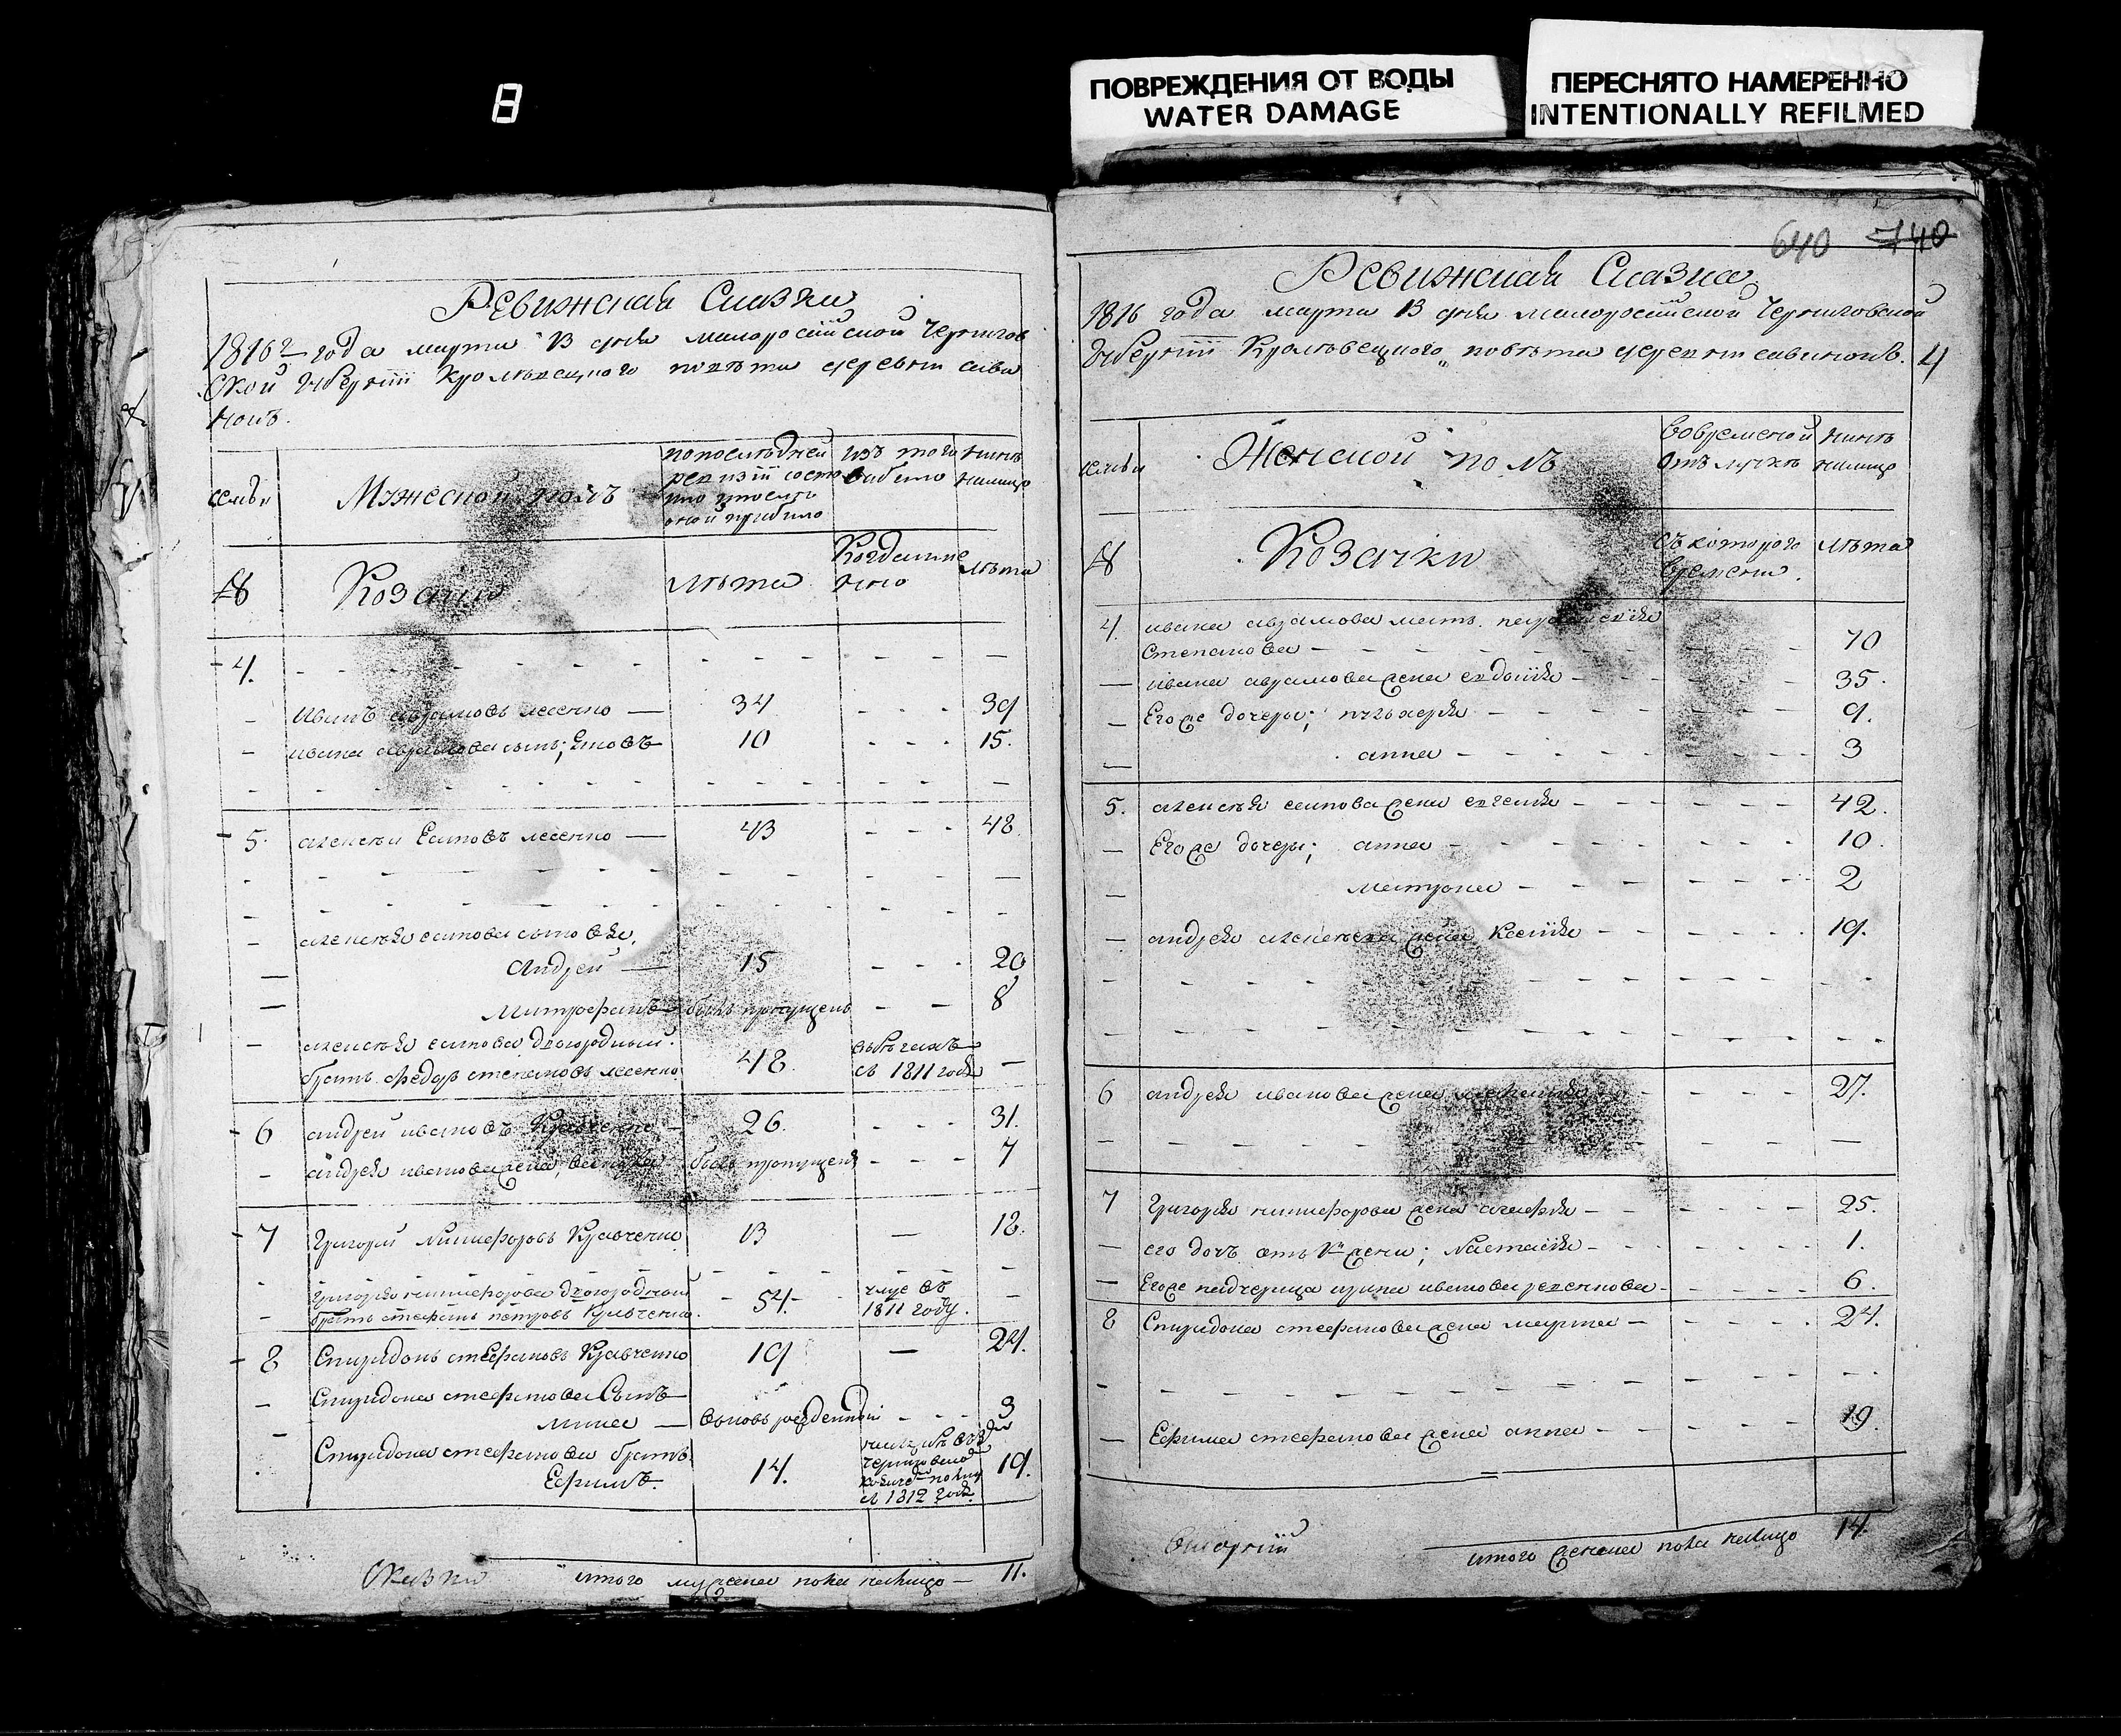 8
ПОВРЕЖДЕНИЯ ОТ ВОДЫ
WATER DAMAGE
ПЕРЕСНЯТО НАМЕРЕННО
INTENTIONALLY REFILMED
Ревижская Сказка
1816го года марта 13 дня малоросійской Чернигов
ской губерніи Кролевецкого повѣта деревни сави
нокъ.
семьи
Мужеской полъ
попоследней
ревизіи состо
яло ипослѣ
оной прибыло
изъ того
выбыло
нынѣ
налицо
№
Козаки
лѣта
Когдаимен
но
лѣта
4.
Иванъ аврамовъ лесенко — 34 39
ивана аврамова сынъ; 10 15.
5. алексѣй Еsиповъ лесенко — 43 48
алексѣя есипова сыновья,
Андрей — 15 20
Митрофанъ — былъ пропущенъ 8
алексѣя есипова двоюродный
братъ федоръ степановъ лесенко 48 въ бегахъ
съ 1811 года —
6 андрей ивановъ Кравченко — 26. 31.
андрея иванова сынъ, былъ пропущенъ 7
7 Григорій Никифоровъ Кравченко 13 — 18.
григорія никифорова двоюродный
братъ стефанъ петровъ Кравченко. 54. умре въ
1811 году.
8 Спиридонъ стефановъ Кравченко 19 — 24.
Спиридона стефанова Сынъ
мина — вновь рожденный 3
Спиридона стефанова братъ
Ефимъ. 14. 19.
съ 1812 года.
Сказки
итого мужеска пола налицо — 11.
640 740
Ревижская Сказка
1816 года марта 13 дня малоросійской Черниговской
Губерніи Кролевецкого повѣта деревни савинокъ. 4
семьи
Женской полъ
вовременной
отлучкѣ
нынѣ
налицо
№
Козачки
съ которого
времени.
лѣта
4. ивана аврамова мать
степанова — 70
— ивана аврамова жена евдокія 35.
— Егоже дочери; пелагея 9.
— анна 3
5. алексѣя есипова жена евгенія 42.
— Егоже дочери; анна 10.
— матрона 2
— андрея алексѣева жена Ксенія 19.
6 андрея иванова жена 27.
7 Григорія никифорова жена агафія 25.
— его дочь отъ жены; Настасія 1.
— Егоже падчерица ирина иванова 6.
8 Спиридона стефанова жена марта 24.
— Ефима стефанова жена анна 19.
итого женска пола налицо 14.